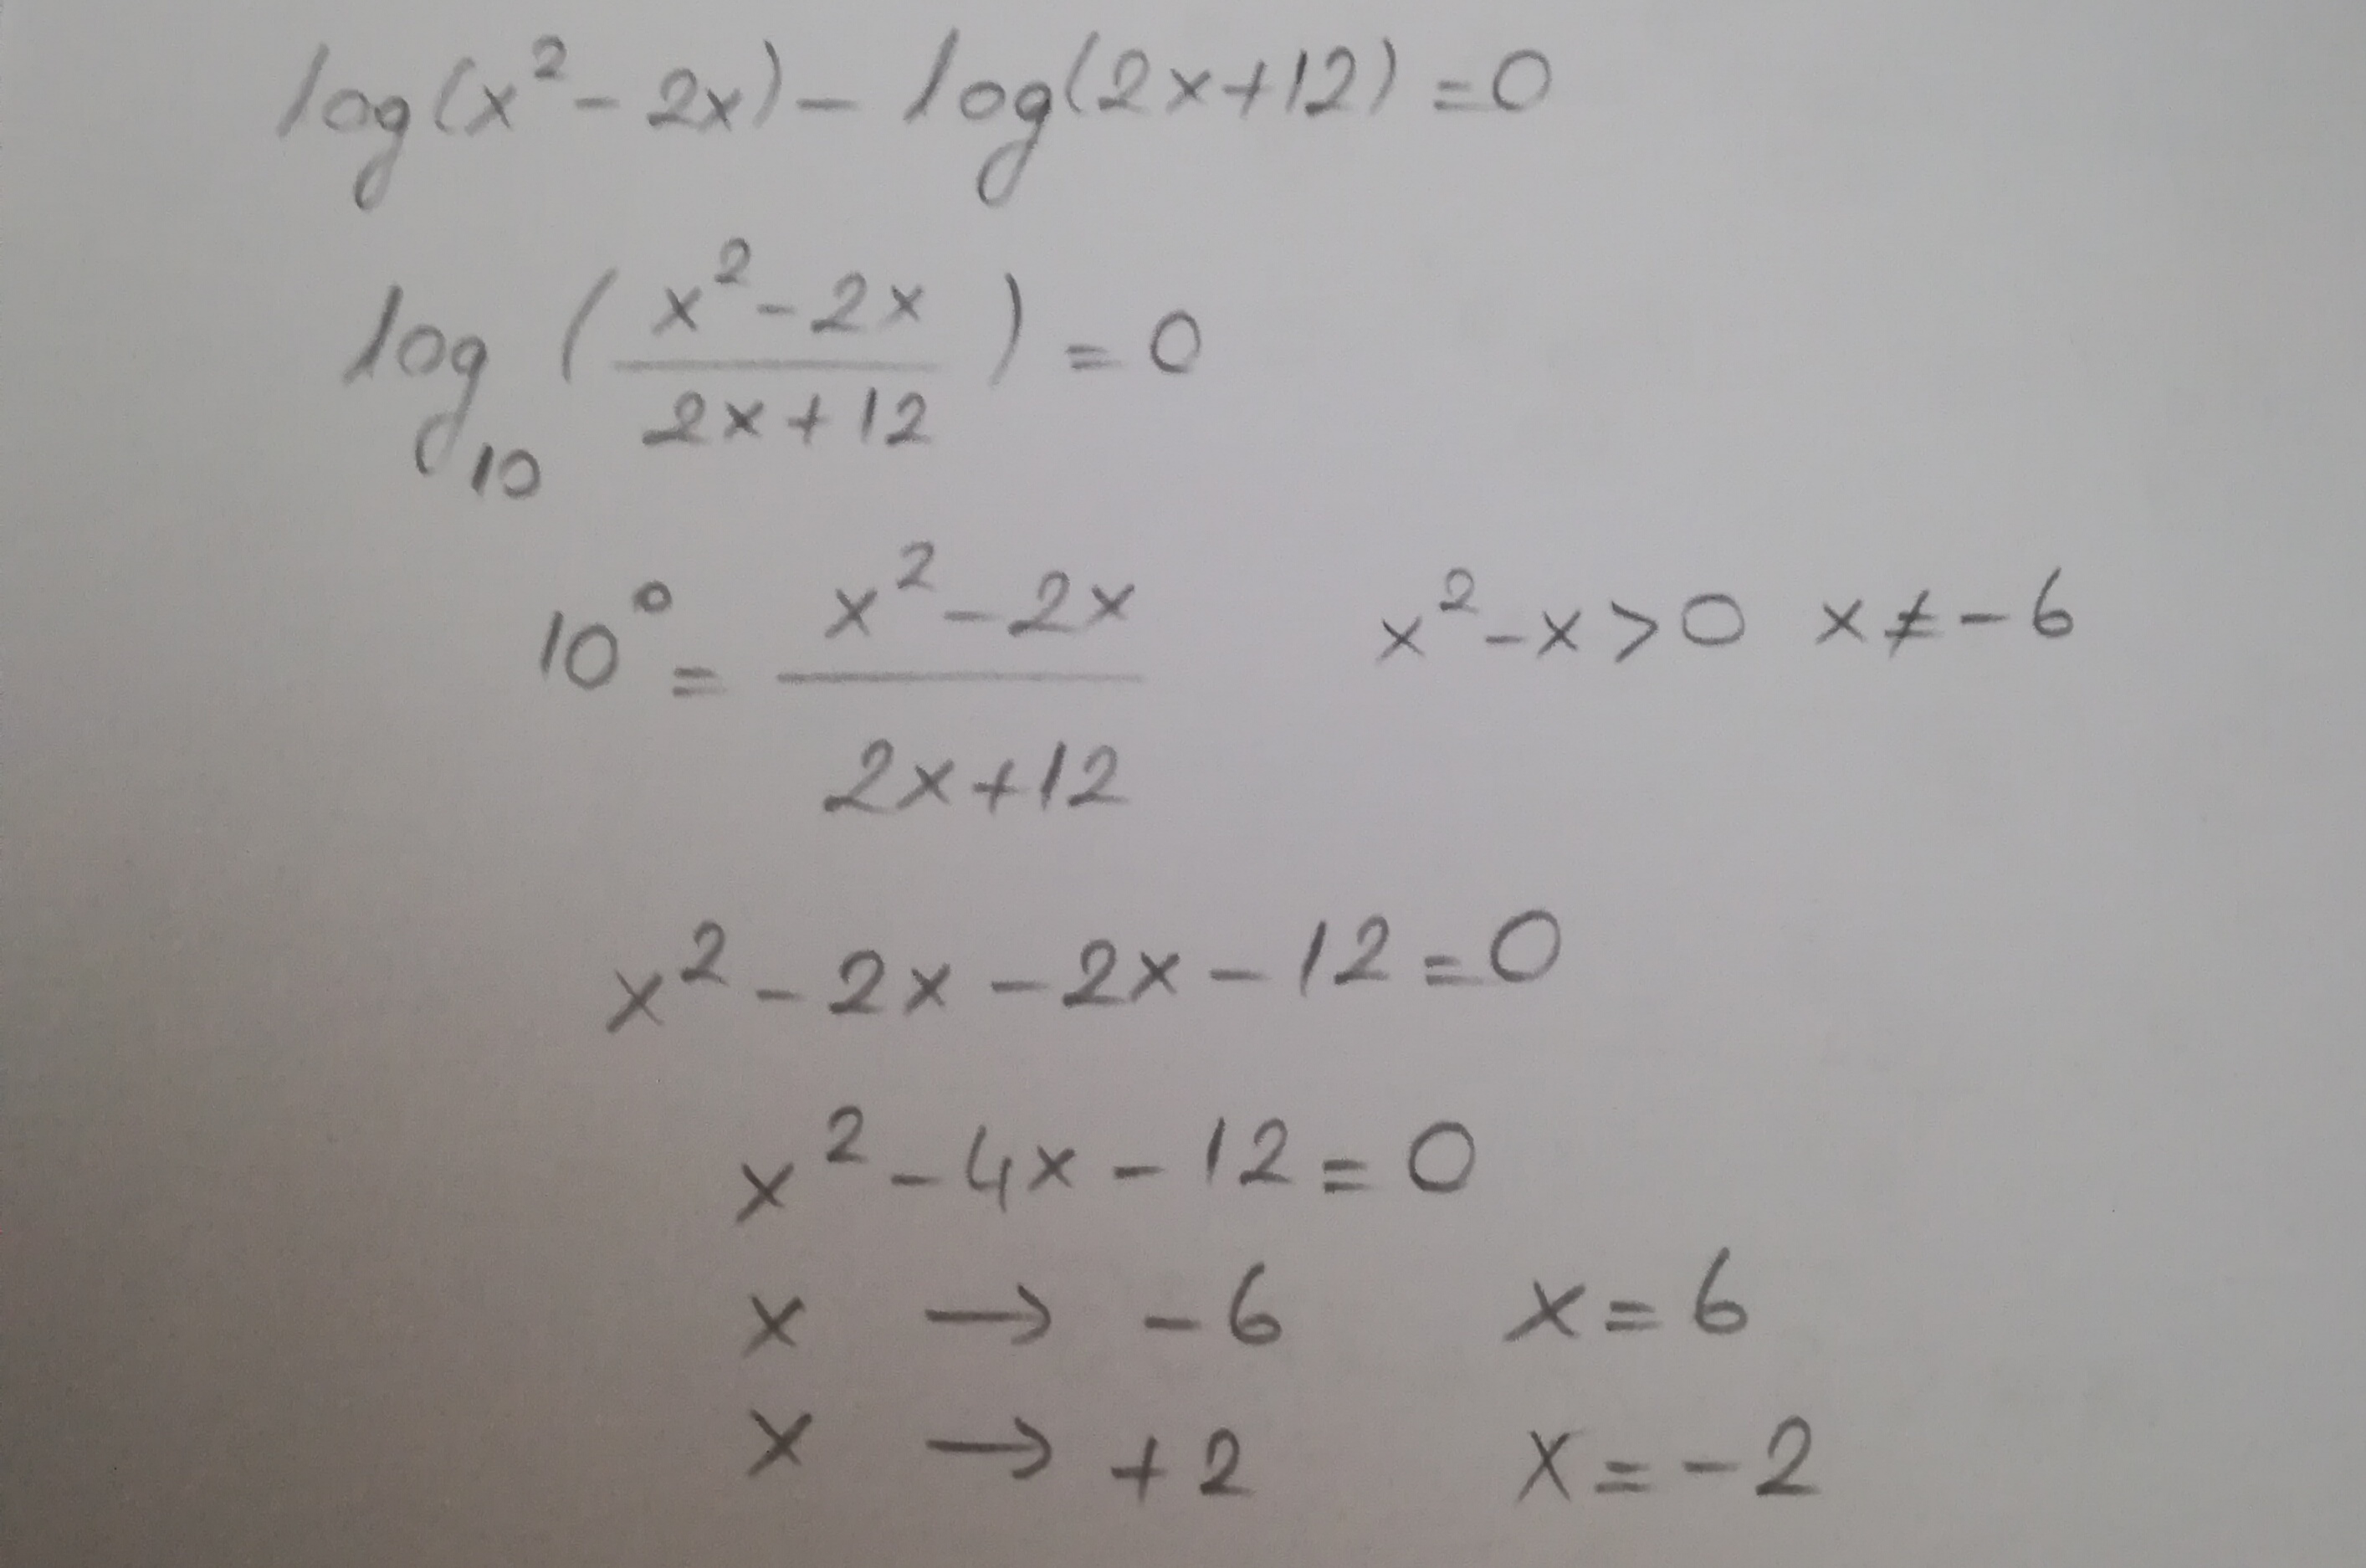 log(x²-2x)-log(2x+12)=0
log₁₀((x²-2x)/(2x+12))=0
10⁰=(x²-2x)/(2x+12) x²-x>0 x≠-6
x²-2x-2x-12=0
x²-4x-12=0
x → -6 x=6
x → +2 x=-2